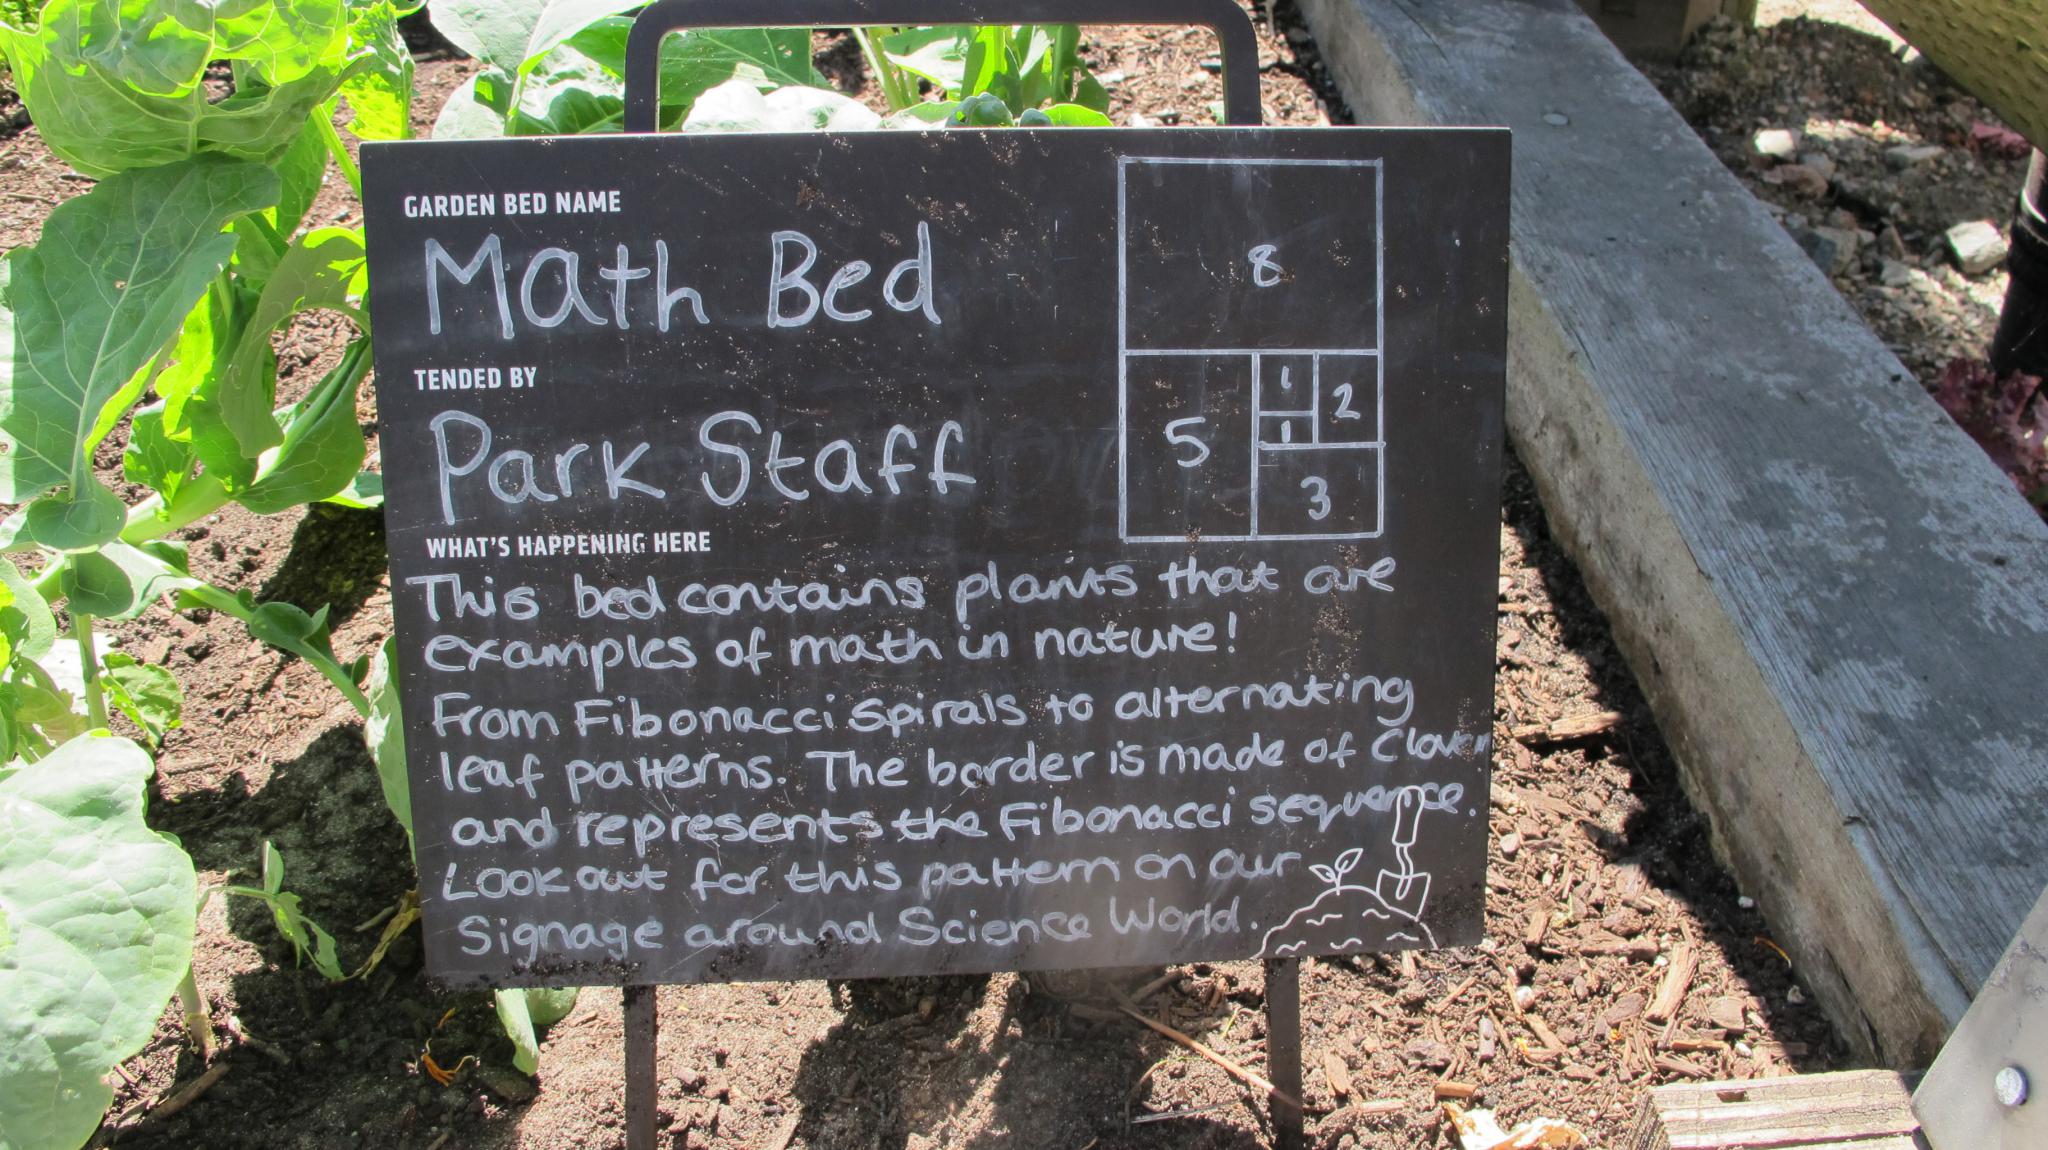 GARDEN BED NAME
Math Bed
TENDED BY
Park Staff
WHAT'S HAPPENING HERE
8
5
1
1
2
3
This bed contains plants that are
examples of math in nature!
From Fibonacci Spirals to alternating
leaf patterns. The border is made of Clover
and represents the Fibonacci sequence.
Look out for this pattern on our
Signage around Science World.